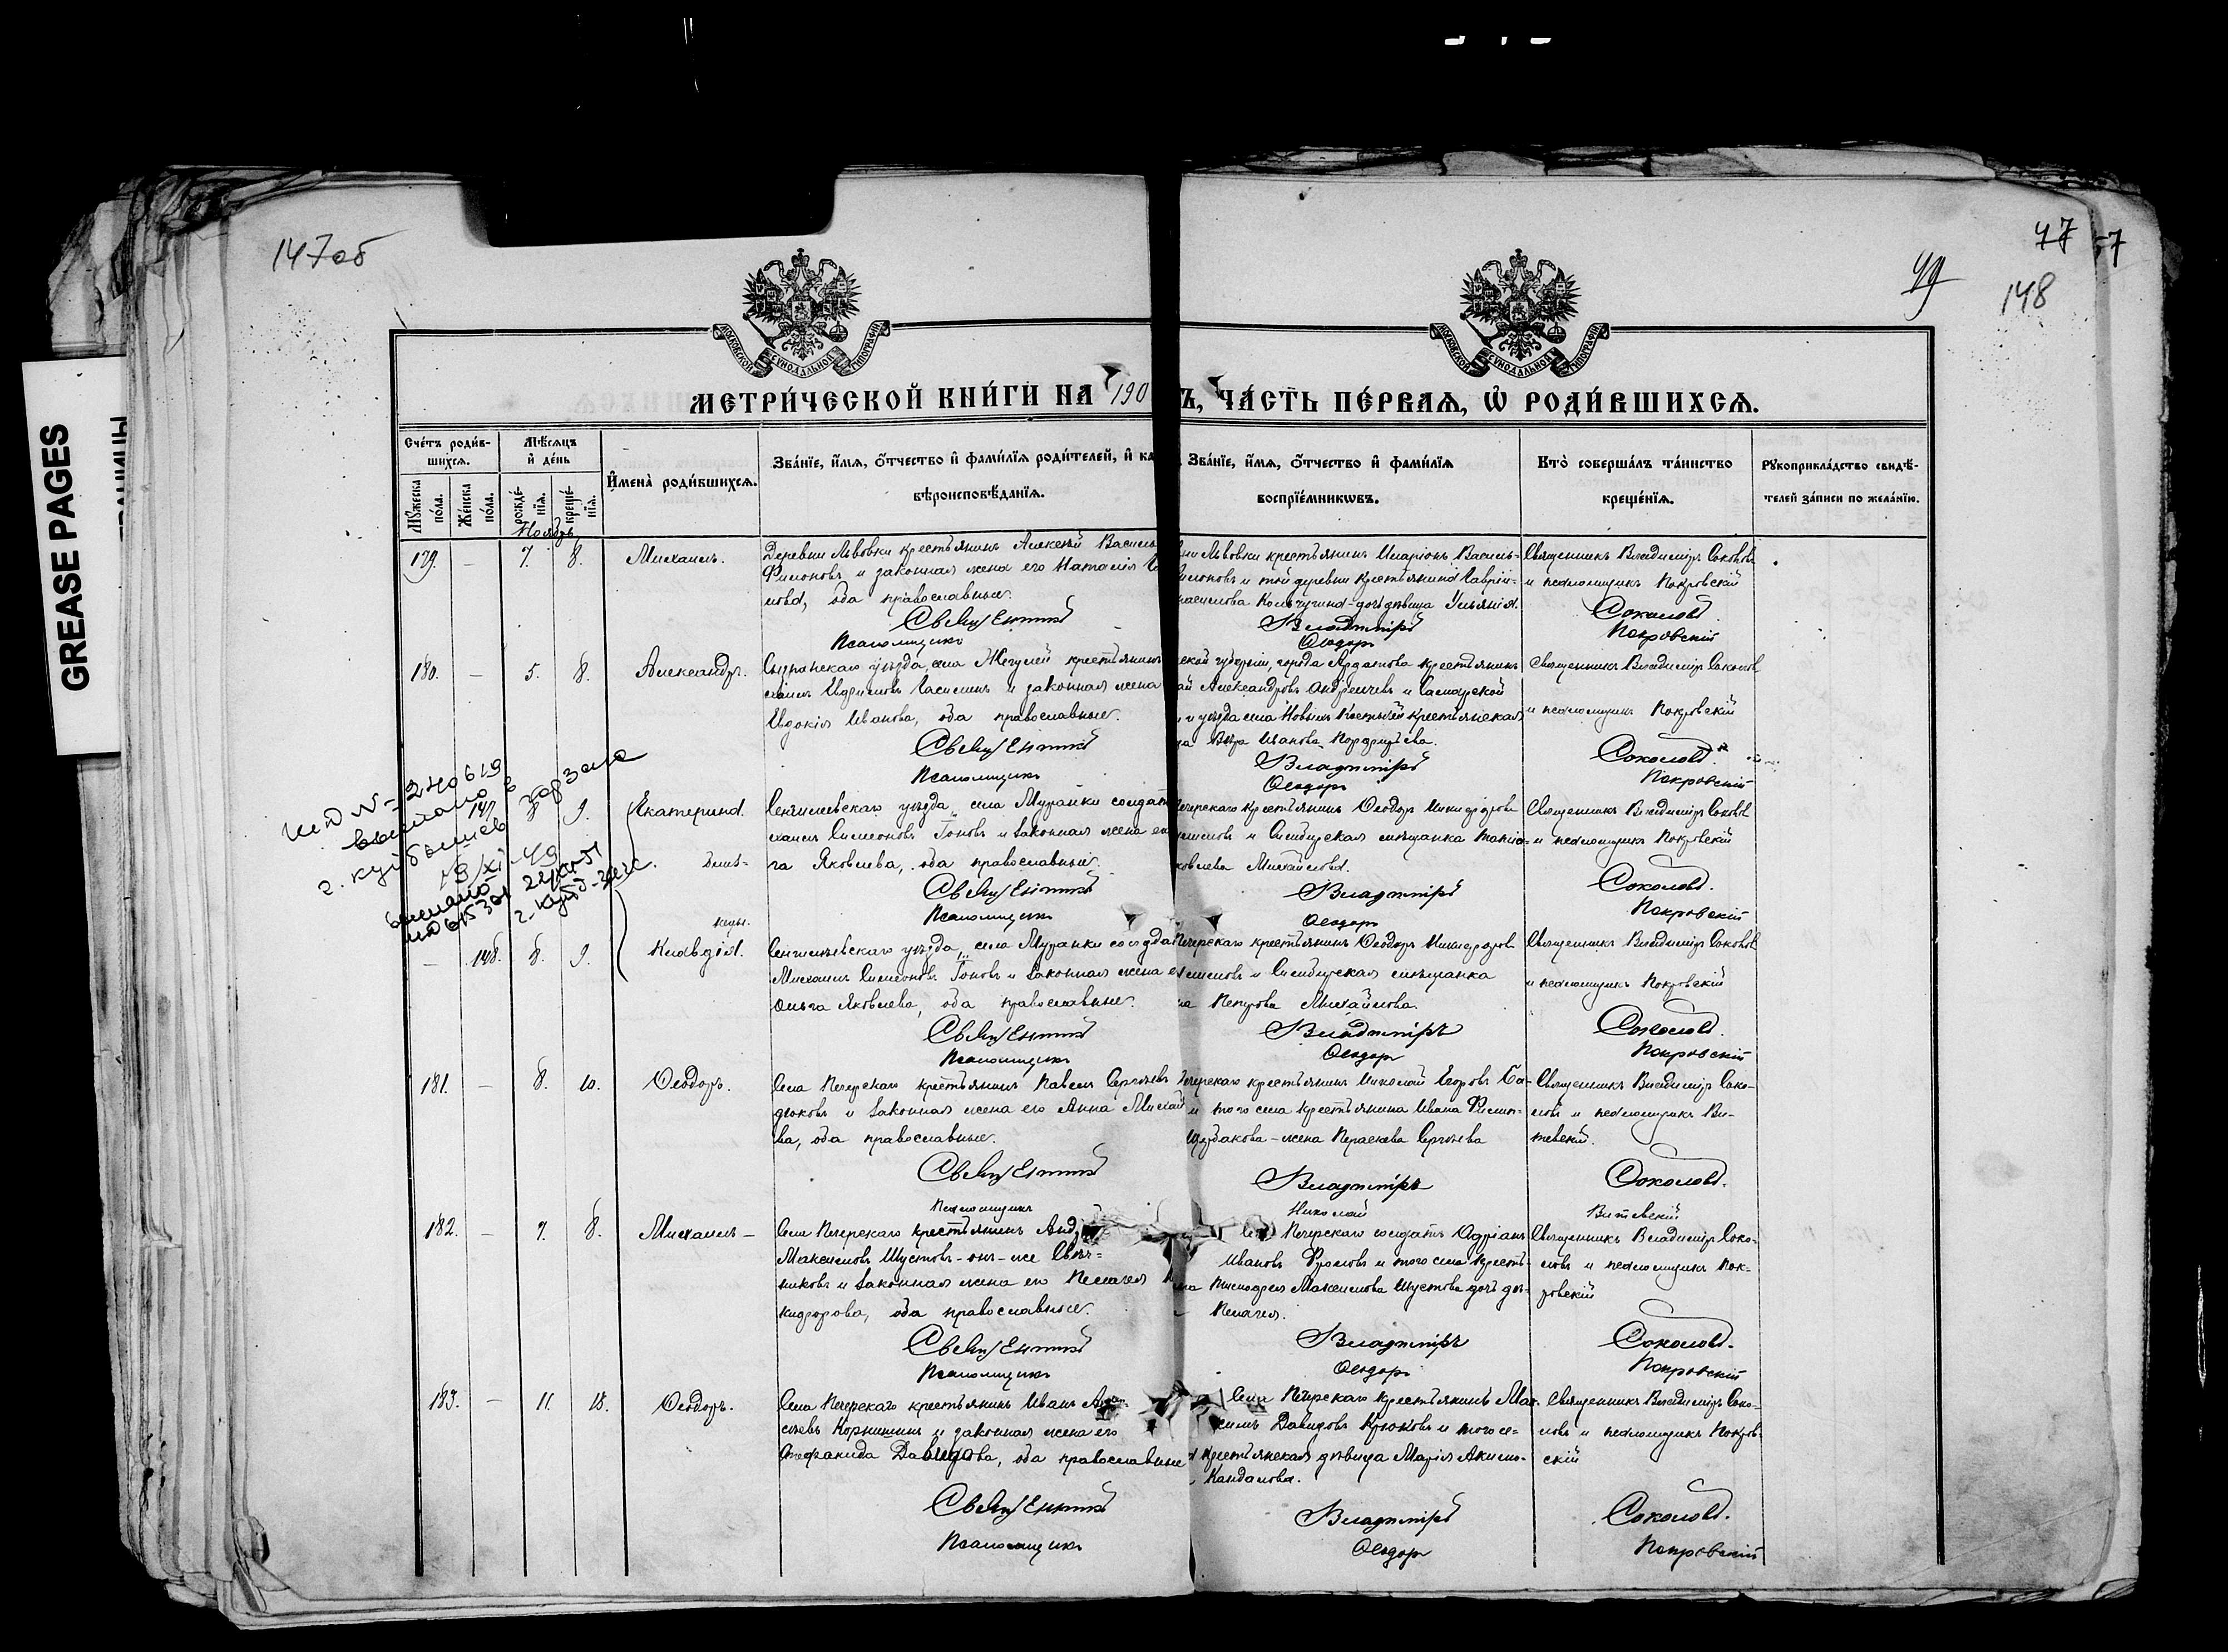 GREASE PAGES
147об
47
57
49
148
МОСКОВСКОЙ СУНОДАЛЬНОЙ ТИПОГРАФІИ
МОСКОВСКОЙ СУНОДАЛЬНОЙ ТИПОГРАФІИ
МЕТРИ́ЧЕСКОЙ КНИ́ГИ НА 190
Ъ, ЧА́СТЬ ПЕ́РВАѦ, Ѡ҆ РОДИ́ВШИХСѦ.
Сче́тъ роди́в-
шихсѧ.
Мѣ́сѧцъ
и҆ де́нь
И҆мена̀ роди́вшихсѧ.
Зва́нїе, и҆́мѧ, ѻ҆́тчество и҆ фами́лїѧ роди́телей, и҆ ка
вѣроисповѣ́данїѧ.
Зва́нїе, и҆́мѧ, ѻ҆́тчество и҆ фами́лїѧ
воспрїе́мникѡвъ.
Кто̀ соверша́лъ та́инство
креще́нїѧ.
Рꙋкоприкла́дство свидѣ́-
телей за́писи по жела́нїю.
Мꙋ́жеска по́ла.
Же́нска по́ла.
рожде́-нїѧ.
креще́-нїѧ.
Ноябрь
179. — 7. 8. Михаилъ.
Деревни Львовки крестьянинъ Алексѣй Василь
Филоновъ и законная жена его Наталія Га
лова, оба православные.
Священникъ
Псаломщикъ
вни Львовки крестьянинъ Иларіонъ Василь-
илоновъ и той деревни крестьянина Гавріи-
Кольчугина-дочь дѣвица Ульянія.
Владиміръ
Ѳеодоръ
Священникъ Владиміръ Соколовъ
и псаломщикъ Покровскій
Соколовъ.
Покровскій
180. — 5. 8. Александръ.
Сызранскаго уѣзда, села Жегулей крестьянинъ
хаилъ Евдокимовъ и законная жена
Евдокія Иванова, оба православные.
Священникъ
Псаломщикъ
ской губерніи, города Ардатова крестьянинъ
ай Александровъ Андреичевъ и Самарской
и уѣзда села Новыхъ Костычей крестьянская
Вѣра Иванова
Владиміръ
Ѳеодоръ
Священникъ Владиміръ Соколовъ
и псаломщикъ Покровскій
Соколовъ.
Покровскій
№ 240619
выслано в
г. Куйбышев
19/XI-49
147. 8. 9. Екатерина.
близ-
нецы.
Сенгилеевскаго уѣзда, села Муранки солдатъ
хаилъ Симеоновъ Гоновъ и законная жена его
га Яковлева, оба православные.
Священникъ
Псаломщикъ
Печерскаго крестьянинъ Ѳеодоръ Никифоровъ
и Симбирская мѣщанка
ковлева Михайлова.
Владиміръ
Ѳеодоръ
Священникъ Владиміръ Соколовъ
и псаломщикъ Покровскій
Соколовъ.
Покровскій
— 148. 8. 9. Клавдія.
Сенгилеевскаго уѣзда, села Муранки солдатъ
Михаилъ Симеоновъ Гоновъ и законная жена е
Ольга Яковлева, оба православные.
Священникъ
Псаломщикъ
Печерскаго крестьянинъ Ѳеодоръ Никифоровъ
и Симбирская мѣщанка
на Петрова Михайлова.
Владиміръ
Ѳеодоръ
Священникъ Владиміръ Соколовъ
и псаломщикъ Покровскій
Соколовъ.
Покровскій
181. — 8. 10. Ѳеодоръ.
Села Печерскаго крестьянинъ Павелъ Сергѣевъ
дюковъ и законная жена его Анна Михай
ва, оба православные.
Священникъ
Псаломщикъ
Печерскаго крестьянинъ Николай Егоровъ Ба-
и того села крестьянина Ивана Филип-
Щербакова-жена Параскева Сергѣева
Владиміръ
Николай
Священникъ Владиміръ Соко-
ловъ и псаломщикъ Ви-
тевскій.
Соколовъ.
Витевскій
182. — 7. 8. Михаилъ —
Села Печерскаго крестьянинъ Анд
Максимовъ Шустовъ-онъ-же Свѣч-
никовъ и законная жена его Пелагея Ни
кифорова, оба православные.
Священникъ
Псаломщикъ
Села Печерскаго солдатъ Адріанъ
Ивановъ Фроловъ и того села крестья-
нина Максимова Шустова дочь дѣ-
Пелагея.
Владиміръ
Ѳеодоръ
Священникъ Владиміръ Соко-
ловъ и псаломщикъ Пок-
ровскій
Соколовъ.
Покровскій
183. — 11. 18. Ѳеодоръ.
Села Печерскаго крестьянинъ Иванъ
сѣевъ Корнишинъ и законная жена его
Стефанида Давидова, оба православные
Священникъ
Псаломщикъ
Села Печерскаго крестьянинъ Мак-
симъ Давидовъ Крюковъ и того се-
крестьянская дѣвица Марія Акимо-
Кандалова.
Владиміръ
Ѳеодоръ
Священникъ Владиміръ Соко-
ловъ и псаломщикъ Покров-
скій
Соколовъ.
Покровскій